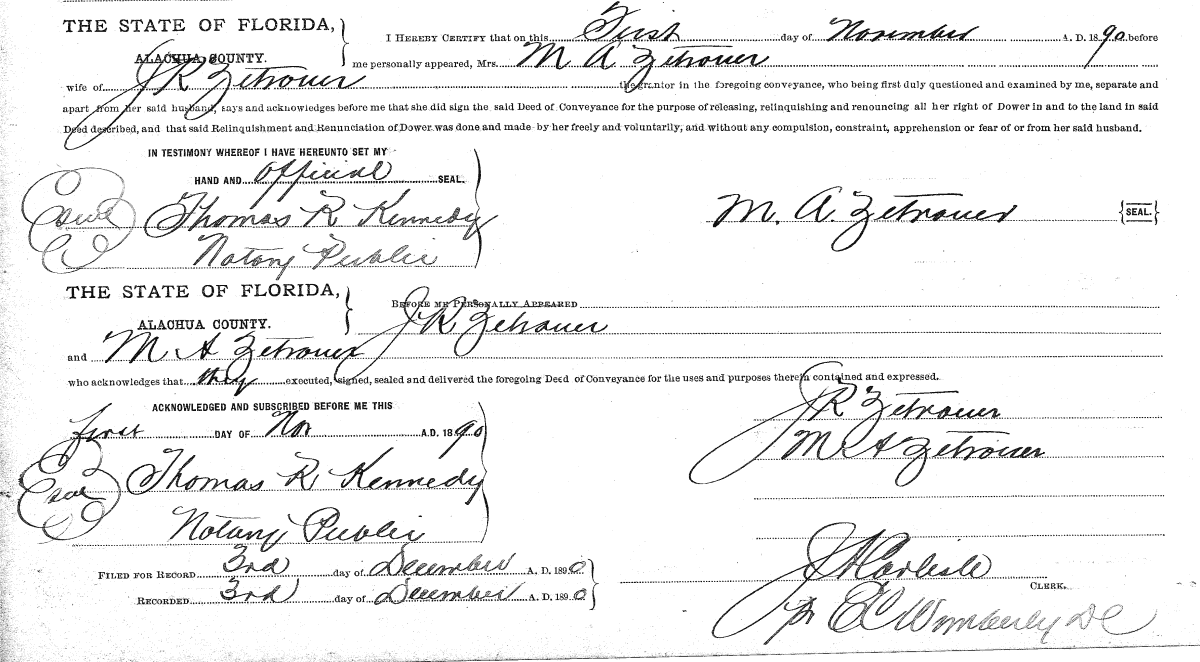 THE STATE OF FLORIDA,
ALACHUA COUNTY.
I HEREBY CERTIFY that on this First day of November A. D. 1890 before
me personally appeared, Mrs. M A Zetrouer
wife of J R Zetrouer the grantor in the foregoing conveyance, who being first duly questioned and examined by me, separate and
apart from her said husband, says and acknowledges before me that she did sign the said Deed of Conveyance for the purpose of releasing, relinquishing and renouncing all her right of Dower in and to the land in said
Deed described, and that said Relinquishment and Renunciation of Dower was done and made by her freely and voluntarily, and without any compulsion, constraint, apprehension or fear of or from her said husband.
IN TESTIMONY WHEREOF I HAVE HEREUNTO SET MY
HAND AND Official SEAL.
Seal Thomas R Kennedy
Notary Public
M. A. Zetrouer {SEAL.}
THE STATE OF FLORIDA,
ALACHUA COUNTY.
BEFORE ME PERSONALLY APPEARED
J R Zetrouer
and M A Zetrouer
who acknowledges that they executed, signed, sealed and delivered the foregoing Deed of Conveyance for the uses and purposes therein contained and expressed.
ACKNOWLEDGED AND SUBSCRIBED BEFORE ME THIS
first DAY OF Nov A.D. 1890
Seal Thomas R Kennedy
Notary Public
J R Zetrouer
M A Zetrouer
FILED FOR RECORD 3rd day of December A. D. 1890
RECORDED 3rd day of December A. D. 1890
J A Carlisle
CLERK.
pr E C Wimberly DC